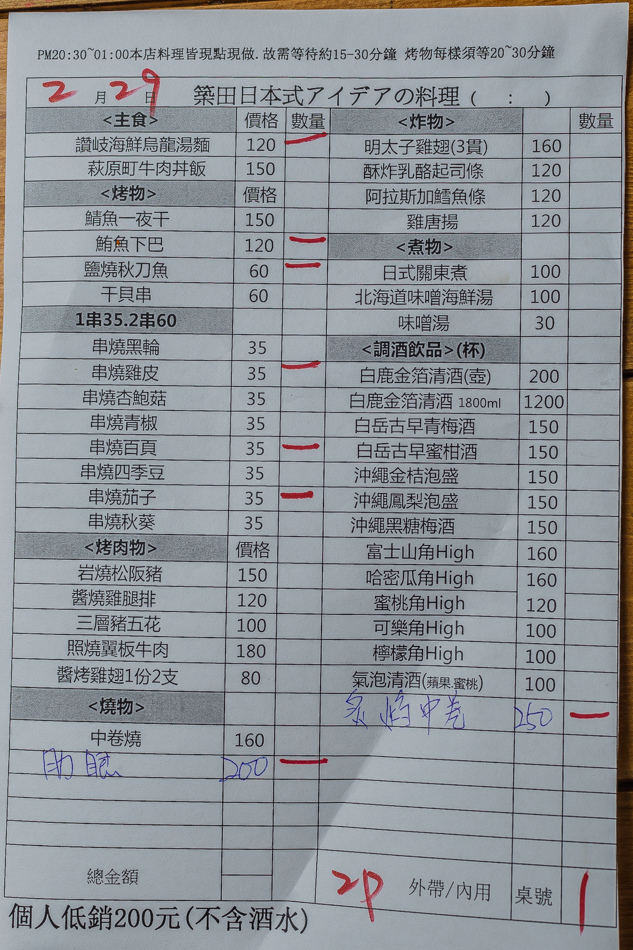 PM20:30~01:00本店料理皆現點現做.故需等待約15-30分鐘 烤物每樣須等20~30分鐘
2月29日 築田日本式アイデアの料理( : )
<主食> 價格 數量
讚岐海鮮烏龍湯麵 120
萩原町牛肉丼飯 150
<烤物> 價格
鯖魚一夜干 150
鮪魚下巴 120
鹽燒秋刀魚 60
干貝串 60
1串35.2串60
串燒黑輪 35
串燒雞皮 35
串燒杏鮑菇 35
串燒青椒 35
串燒百頁 35
串燒四季豆 35
串燒茄子 35
串燒秋葵 35
<烤肉物> 價格
岩燒松阪豬 150
醬燒雞腿排 120
三層豬五花 100
照燒翼板牛肉 180
醬烤雞翅1份2支 80
<燒物>
中卷燒 160
200
總金額
<炸物> 數量
明太子雞翅(3貫) 160
酥炸乳酪起司條 120
阿拉斯加鱈魚條 120
雞唐揚 120
<煮物>
日式關東煮 100
北海道味噌海鮮湯 100
味噌湯 30
<調酒飲品>(杯)
白鹿金箔清酒(壺) 200
白鹿金箔清酒 1800ml 1200
白岳古早青梅酒 150
白岳古早蜜柑酒 150
沖繩金桔泡盛 150
沖繩鳳梨泡盛 150
沖繩黑糖梅酒 150
富士山角High 160
哈密瓜角High 160
蜜桃角High 120
可樂角High 100
檸檬角High 100
氣泡清酒(蘋果.蜜桃) 100
中卷 250
2P 外帶/內用 桌號 1
個人低銷200元(不含酒水)